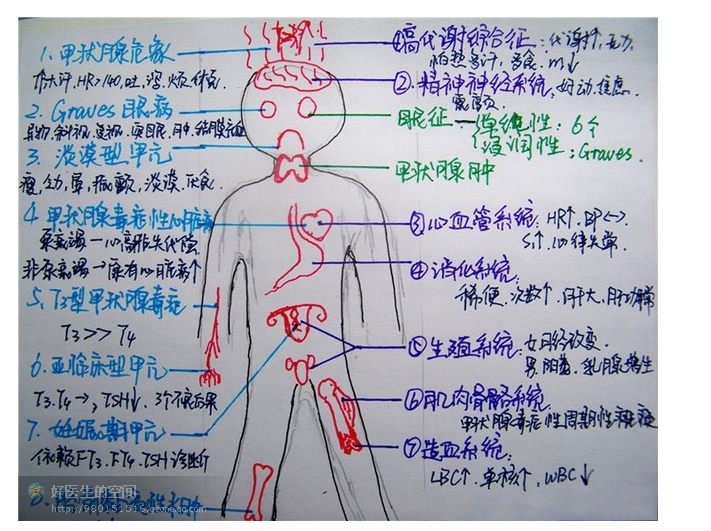 1. 甲状腺危象
大汗, HR>140, 吐, 泻
2. Graves 眼病
异物, 斜视, 复视, 突眼
3. 淡漠型甲亢
瘦, 乏力, 晕, 淡漠, 厌食
4. 甲状腺毒症性心脏病
高排失代偿
非 → 原有心脏病↑
5. T3型甲状腺毒症
T3 >> T4
6. 亚临床型甲亢
T3. T4 →, TSH↓. 3个不良后果
7. 妊娠期甲亢
依赖 FT3. FT4. TSH 诊断
8.
①高代谢综合征: 代谢↑, 乏力,
怕热多汗, 多食, m↓
②. 精神神经系统: 好动, 焦虑.
眼征 — 单纯性: 6个
浸润性: Graves.
甲状腺肿
③心血管系统: HR↑. BP<->.
S₁↑, 心律失常.
④ 消化系统:
稀便, 次数↑, 肝大, 肝功异常
⑤生殖系统: 女月经改变.
男阳萎, 乳腺增生
⑥肌肉骨骼系统:
甲状腺毒症性周期性瘫痪
⑦造血系统:
LBC↑. 单核↑. WBC↓
好医生的空间
http://980151516.qzone.qq.com